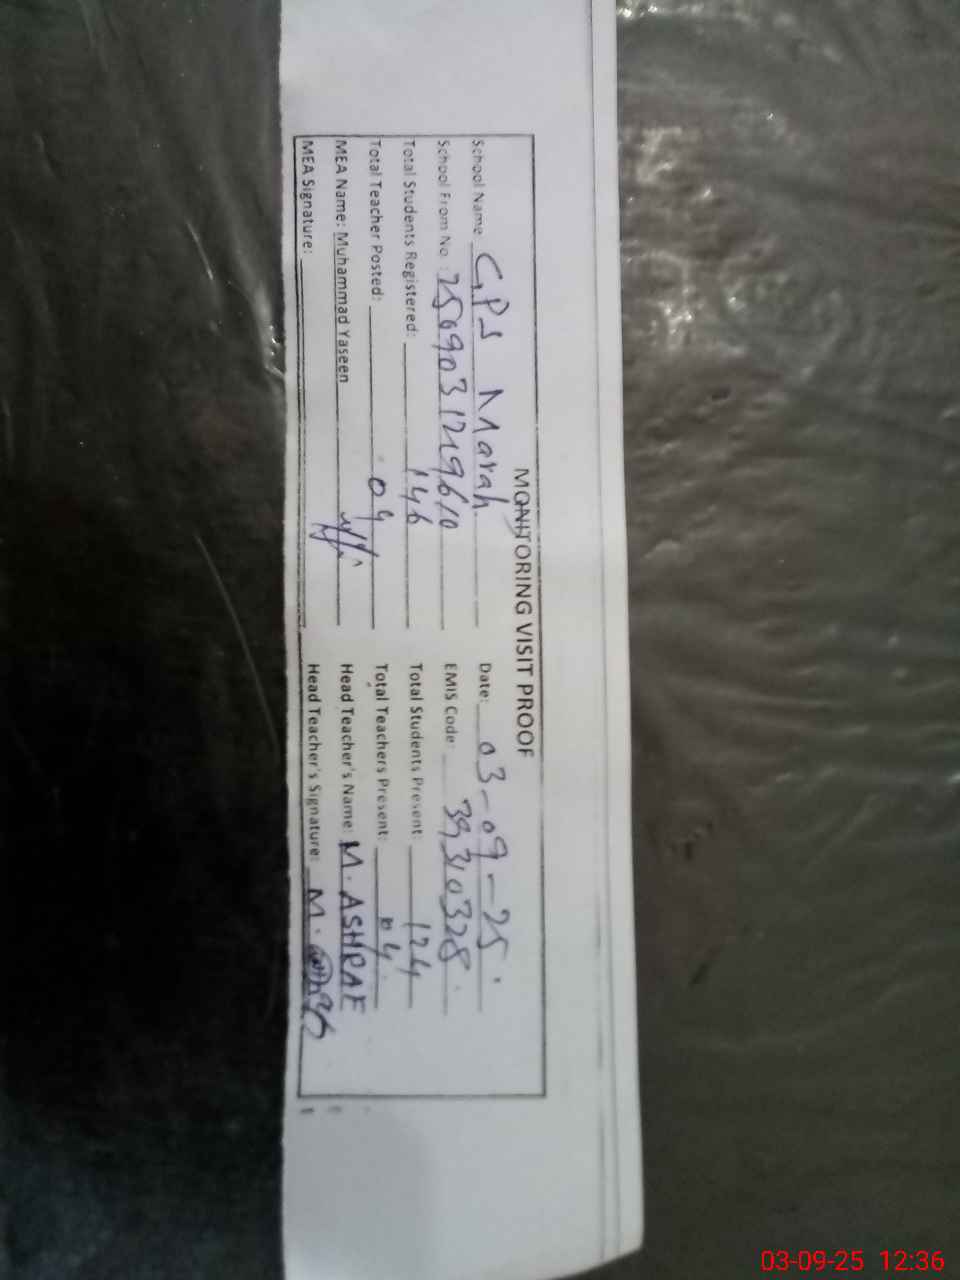 MONITORING VISIT PROOF
School Name GPS Marah Date: 03-09-25
School From No: 2509031219610 EMIS Code: 39310328
Total Students Registered: 146 Total Students Present: 124
Total Teacher Posted: 04 Total Teachers Present: 04
MEA Name: Muhammad Yaseen Head Teacher's Name: M. ASHRAF
MEA Signature: Head Teacher's Signature: M.
03-09-25 12:36